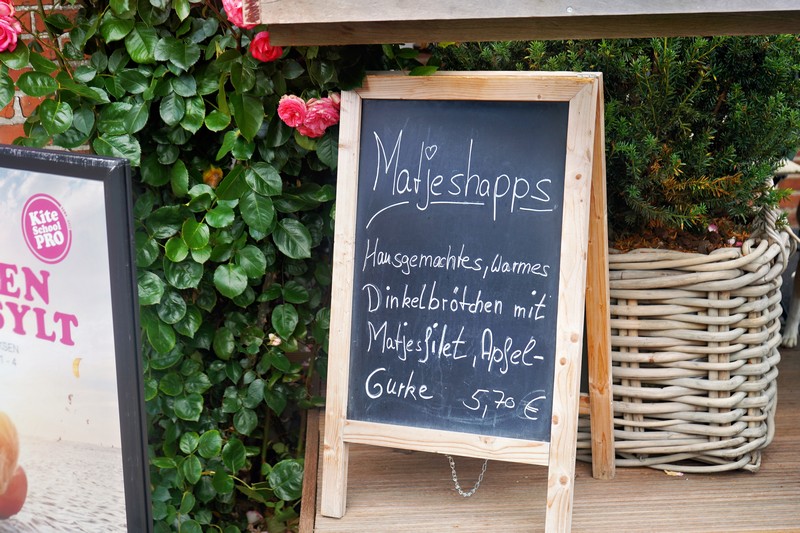 Kite
School
PRO
EN
SYLT
Matjeshapps
Hausgemachtes, warmes
Dinkelbrötchen mit
Matjesfilet, Apfel-
Gurke 5,70 €